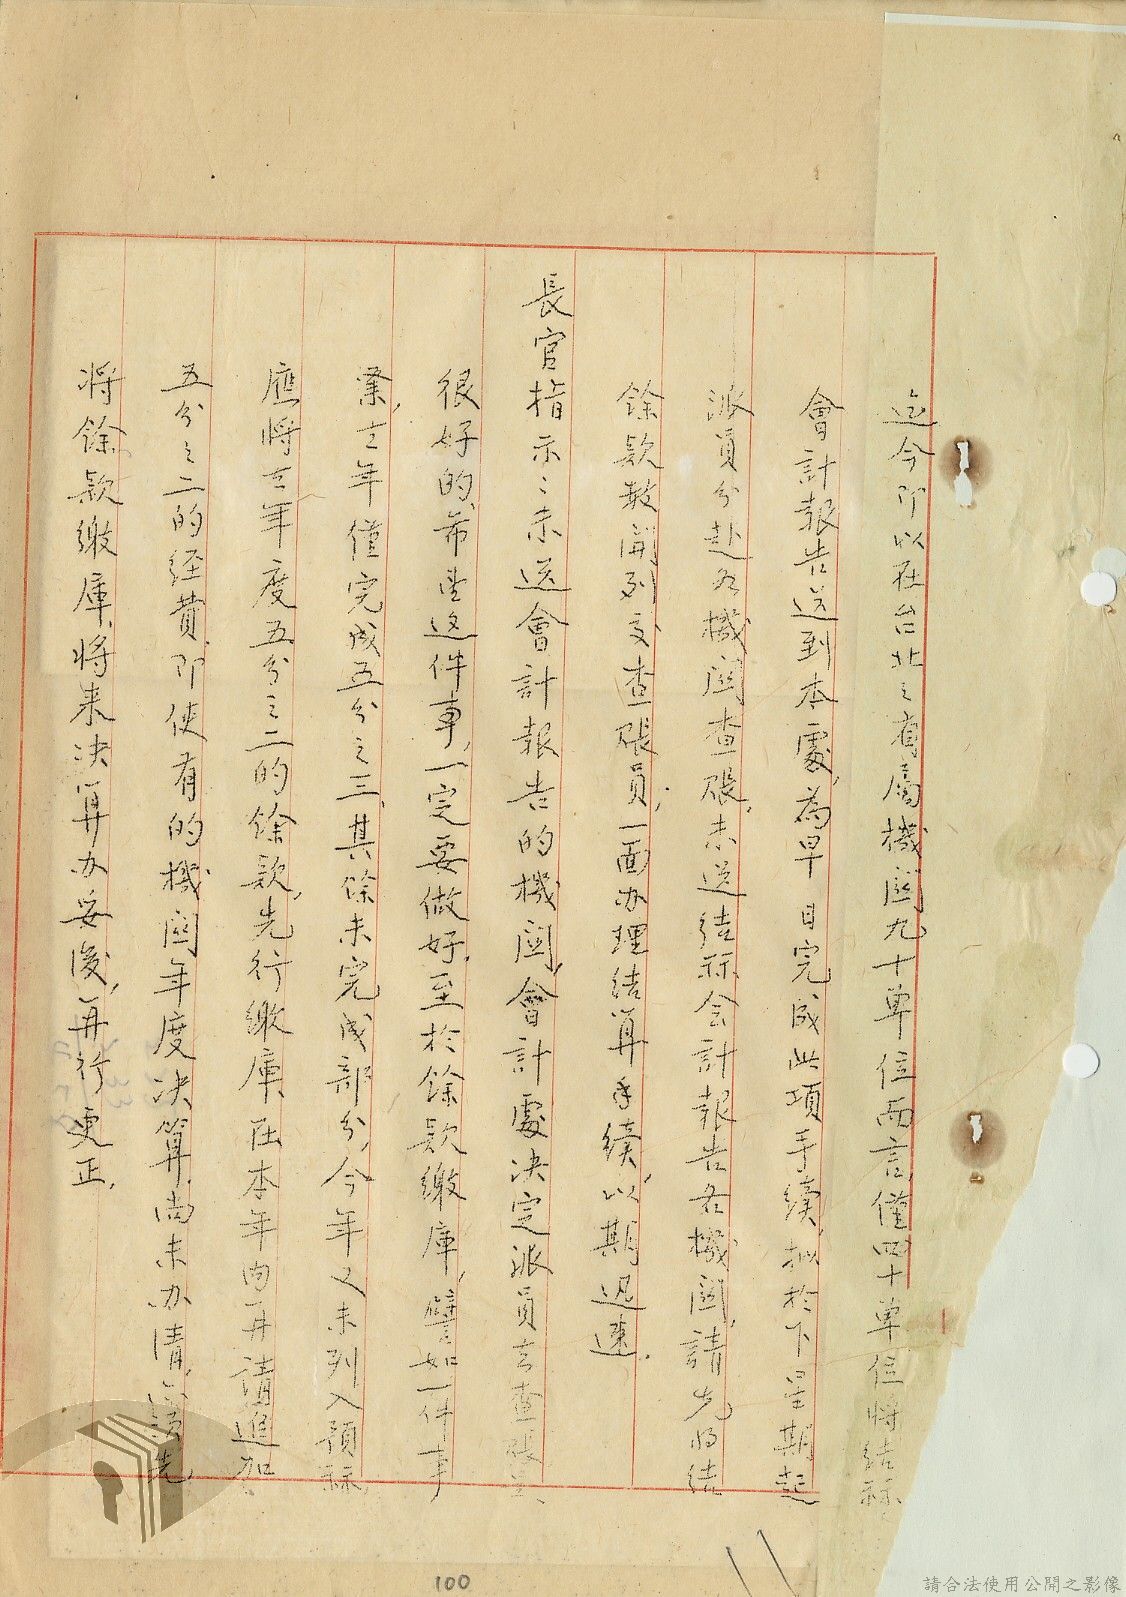 迄今即以在台北之有屬機關九十單位而言,僅四十單位將結祘
會計報告送到本處,為早日完成此項手續,擬於下星期起
派員分赴各機關查賬,未送結祘会計報告各機關,請先將結
餘款數開列交查賬員,一面办理結算手續,以期迅速.
長官指示:未送會計報告的機關,會計處決定派員去查賬,
很好的,希望這件事,一定要做好,至於餘款繳庫,譬如一件事
業,去年僅完成五分之三,其餘未完成部分,今年又未列入預祘,
應將去年度五分之二的餘款,先行繳庫,在本年內再請追加
五分之二的経費,即使有的機關年度決算,尚未办清,須先
将餘款繳庫,将来決算办妥後,再行更正,
100
請合法使用公開之影像